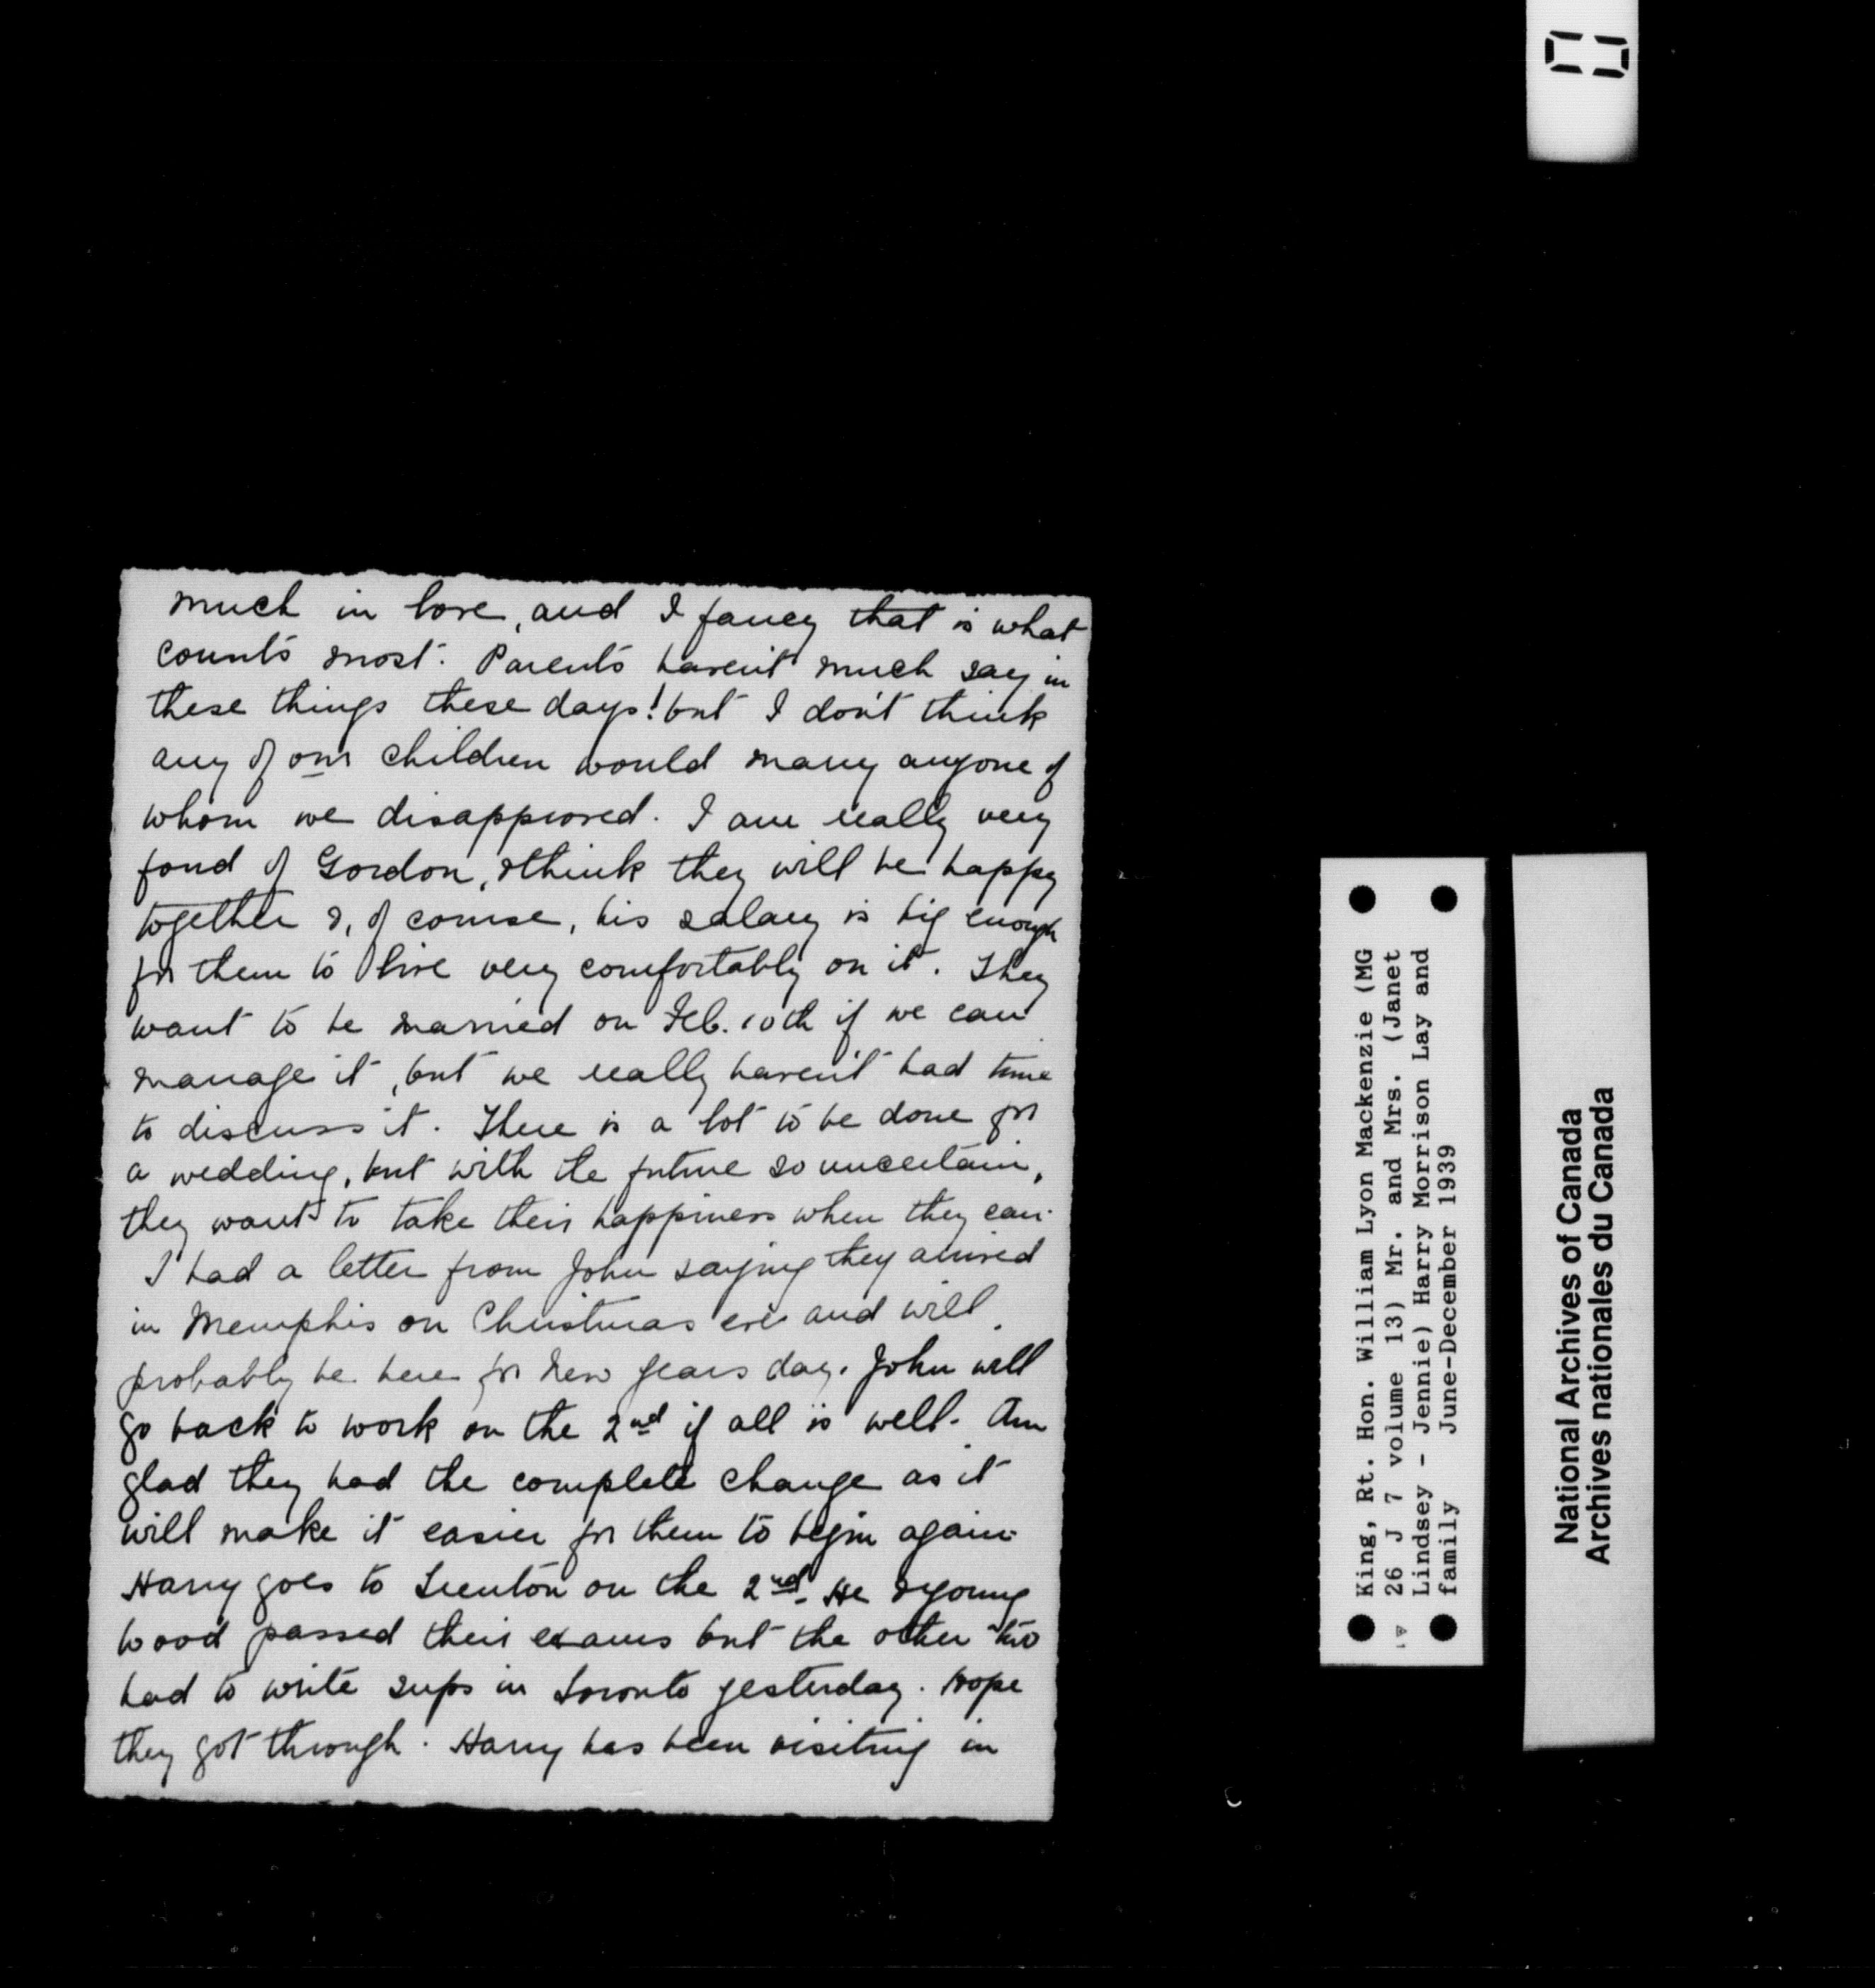 much in love, and I fancy that is what
counts most. Parents haven't much say in
these things these days! but I don't think
any of our children would marry anyone of
whom we disapproved. I am really very
fond of Gordon, & think they will be happy
together &, of course, his salary is big enough
for them to live very comfortably on it. They
want to be married on Feb. 10th if we can
manage it, but we really haven't had time
to discuss it. There is a lot to be done for
a wedding, but with the future so uncertain,
they want to take their happiness when they can.
I had a letter from John saying they arrived
in Memphis on Christmas eve and will
probably be here for New Years day. John will
go back to work on the 2nd if all is well. Am
glad they had the complete change as it
will make it easier for them to begin again.
Harry goes to Trenton on the 2nd. He & young
Wood passed their exams but the other two
had to write sups in Toronto yesterday. Hope
they got through. Harry has been visiting in
King, Rt. Hon. William Lyon Mackenzie (MG
26 J 7 volume 13) Mr. and Mrs. (Janet
Lindsey - Jennie) Harry Morrison Lay and
family June-December 1939
National Archives of Canada
Archives nationales du Canada